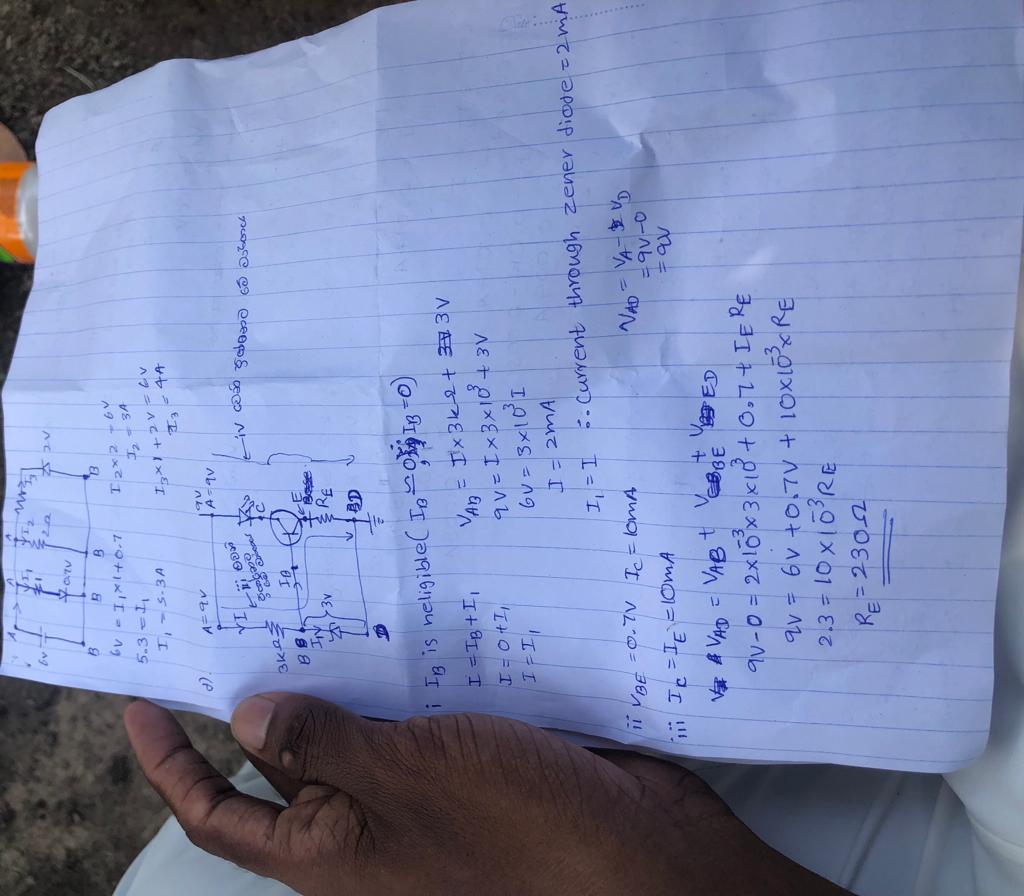 6V
2V
6V = I₁×1+0.7
5.3 = I₁
I₁ = 5.3A
I₂×2 = 6V
I₂ = 3A
I₃×1+2V = 6V
I₃ = 4A
d).
A=9V
9V
A=9V
3kΩ
3V
i I_B is neligible( I_B ≈0 ; I_B=0)
I = I_B+I₁
I = 0+I₁
I = I₁
V_AB = I×3k2+ 3V
9V = I×3×10³+3V
6V = 3×10³I
I = 2mA
I₁ = I ∴ current through zener diode = 2mA
ii V_BE = 0.7V I_C = 10mA
iii I_C = I_E = 10mA
V_AD = V_A - V_D
= 9V-0
= 9V
V_AD = V_AB + V_BE + V_ED
9V-0 = 2×10⁻³×3×10³+0.7+I_E R_E
9V = 6V+0.7V + 10×10⁻³×R_E
2.3 = 10×10⁻³R_E
R_E = 230Ω